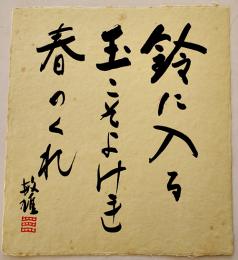 鈴に入る
玉こそよけれ
春のくれ
敏雄